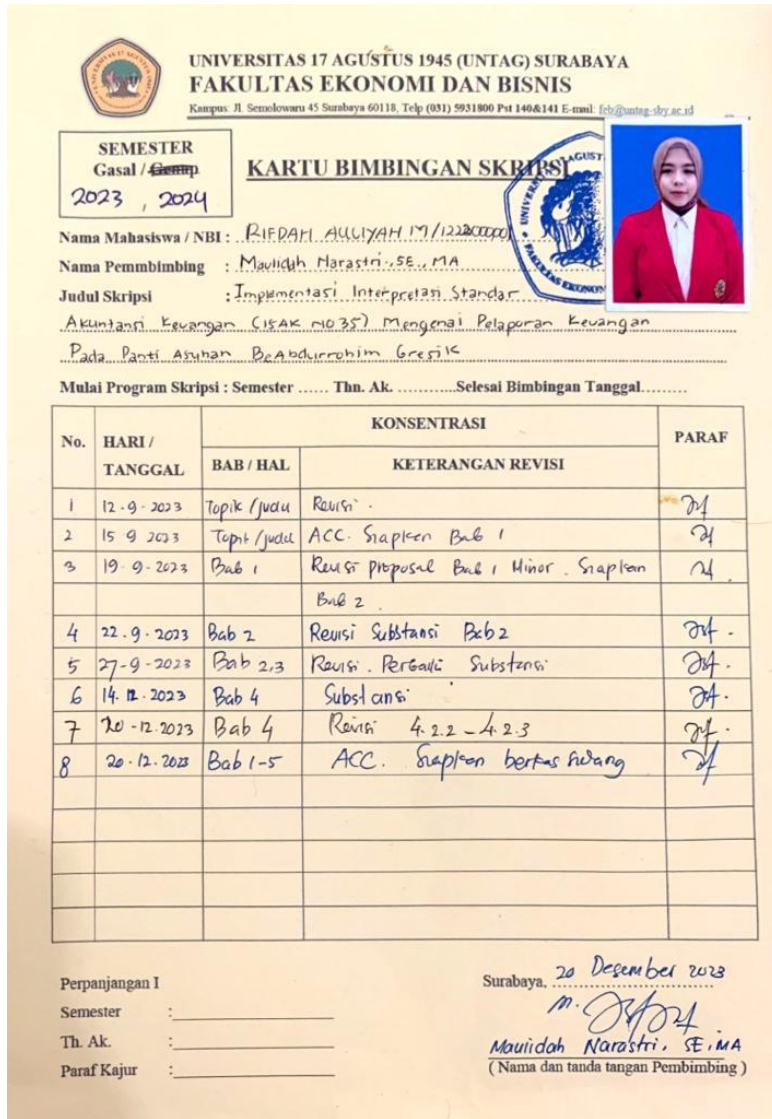 UNIVERSITAS 17 AGUSTUS 1945 (UNTAG) SURABAYA
FAKULTAS EKONOMI DAN BISNIS
Kampus: Jl. Semolowaru 45 Surabaya 60118, Telp (031) 5931800 Pst 140&141 E-mail: feb@untag-sby.ac.id
SEMESTER
Gasal / Genap
2023 , 2024
KARTU BIMBINGAN SKRIPSI
Nama Mahasiswa / NBI : RIFDAH AULIYAH M/
Nama Pemmbimbing : Maulidah Narastri, SE., MA
Judul Skripsi : Implementasi Interpretasi Standar
Akuntansi Keuangan (ISAK NO 35) Mengenai Pelaporan Keuangan
Pada Panti Asuhan BeAbdurrohim Gresik
Mulai Program Skripsi : Semester ...... Thn. Ak. ...........Selesai Bimbingan Tanggal.........
No. HARI / TANGGAL KONSENTRASI PARAF
BAB / HAL KETERANGAN REVISI
1 12-9-2023 Topik /judul Revisi.
2 15 9 2023 Topik /judul ACC. Siapkan Bab 1
3 19-9-2023 Bab 1 Revisi proposal Bab 1 Minor. Siapkan
Bab 2.
4 22.9.2023 Bab 2 Revisi Substansi Bab 2
5 27-9-2023 Bab 2,3 Revisi. Perbaiki Substansi
6 14.12.2023 Bab 4 Substansi
7 20-12.2023 Bab 4 Revisi 4.2.2 - 4.2.3
8 20.12.2023 Bab 1-5 ACC. Siapkan berkas sidang
Perpanjangan I
Semester :
Th. Ak. :
Paraf Kajur :
Surabaya, 20 Desember 2023
Maulidah Narastri, SE, MA
( Nama dan tanda tangan Pembimbing )